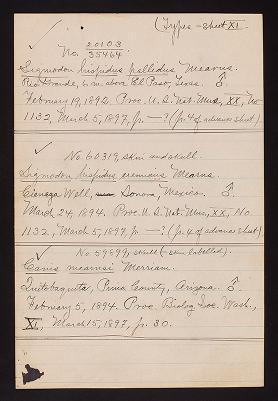 (Types – Sheet XI.
✓
No. 20103/35464.
Sigmodon hispidus pallidus Mearns.
Rio Grande, 6 m. above El Paso, Texas. ♂.
February 19, 1892. Proc. U. S. Nat. Mus., XX, No.
1132, March 5, 1897, p. —? (p. 4 of advance sheet).
✓
No. 60319, skin and skull.
Sigmodon hispidus eremicus Mearns.
Cienega Well, Sonora, Mexico. ♂.
March 24, 1894. Proc. U. S. Nat. Mus., XX, No.
1132, March 5, 1897, p. —? (p. 4 of advance sheet).
✓
No 59899, skull (– skin labelled).
Canis mearnsi Merriam.
Quitobaquita, Pima County, Arizona. ♂.
February 5, 1894. Proc. Biolog. Soc. Wash.,
XI, March 15, 1897, p. 30.